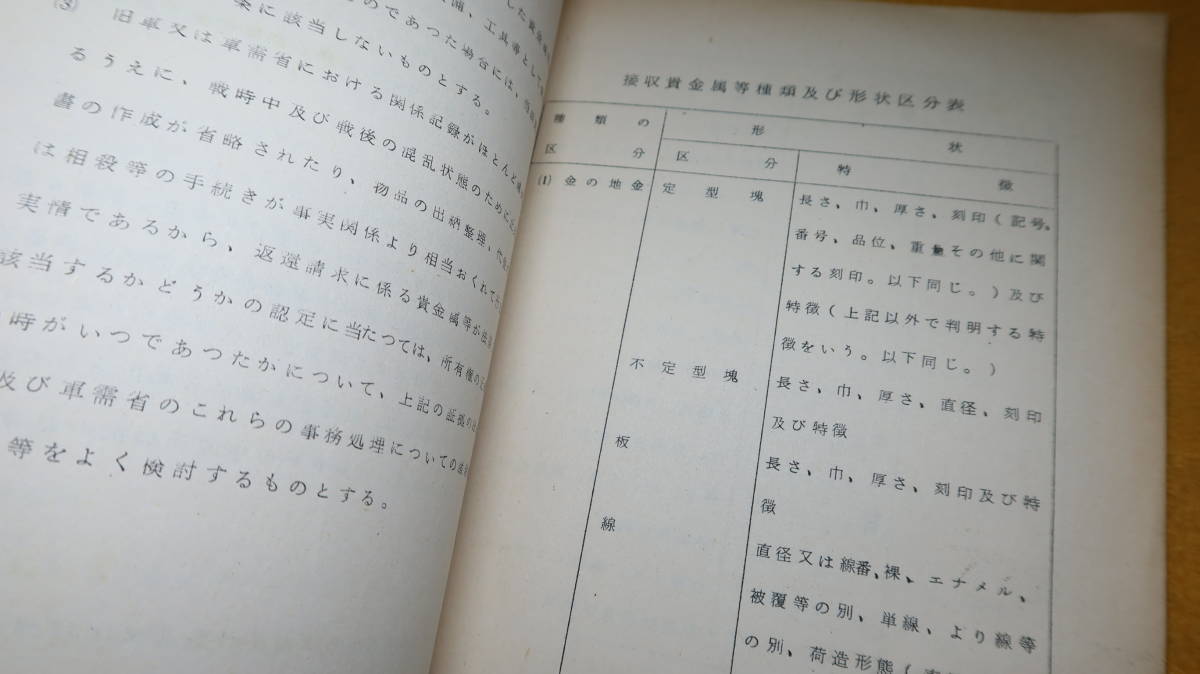 した貴金属
備、工具等として
のであつた場合には、当
条に該当しないものとする。
(3) 旧軍又は軍需省における関係記録がほとんど
るうえに、戦時中及び戦後の混乱状態のために
書の作成が省略されたり、物品の出納整理、代
は相殺等の手続きが事実関係より相当おくれて
実情であるから、返還請求に係る貴金属等が
該当するかどうかの認定に当たつては、所有権の
時がいつであつたかについて、上記の証拠の
及び軍需省のこれらの事務処理についての
等をよく検討するものとする。
接収貴金属等種類及び形状区分表
種類の区分
形状
区分
特徴
(1) 金の地金
定型塊
長さ、巾、厚さ、刻印(記号、
番号、品位、重量その他に関
する刻印。以下同じ。)及び
特徴(上記以外で判明する特
徴をいう。以下同じ。)
不定型塊
長さ、巾、厚さ、直径、刻印
及び特徴
板
長さ、巾、厚さ、刻印及び特
徴
線
直径又は線番、裸、エナメル、
被覆等の別、単線、より線等
の別、荷造形態(